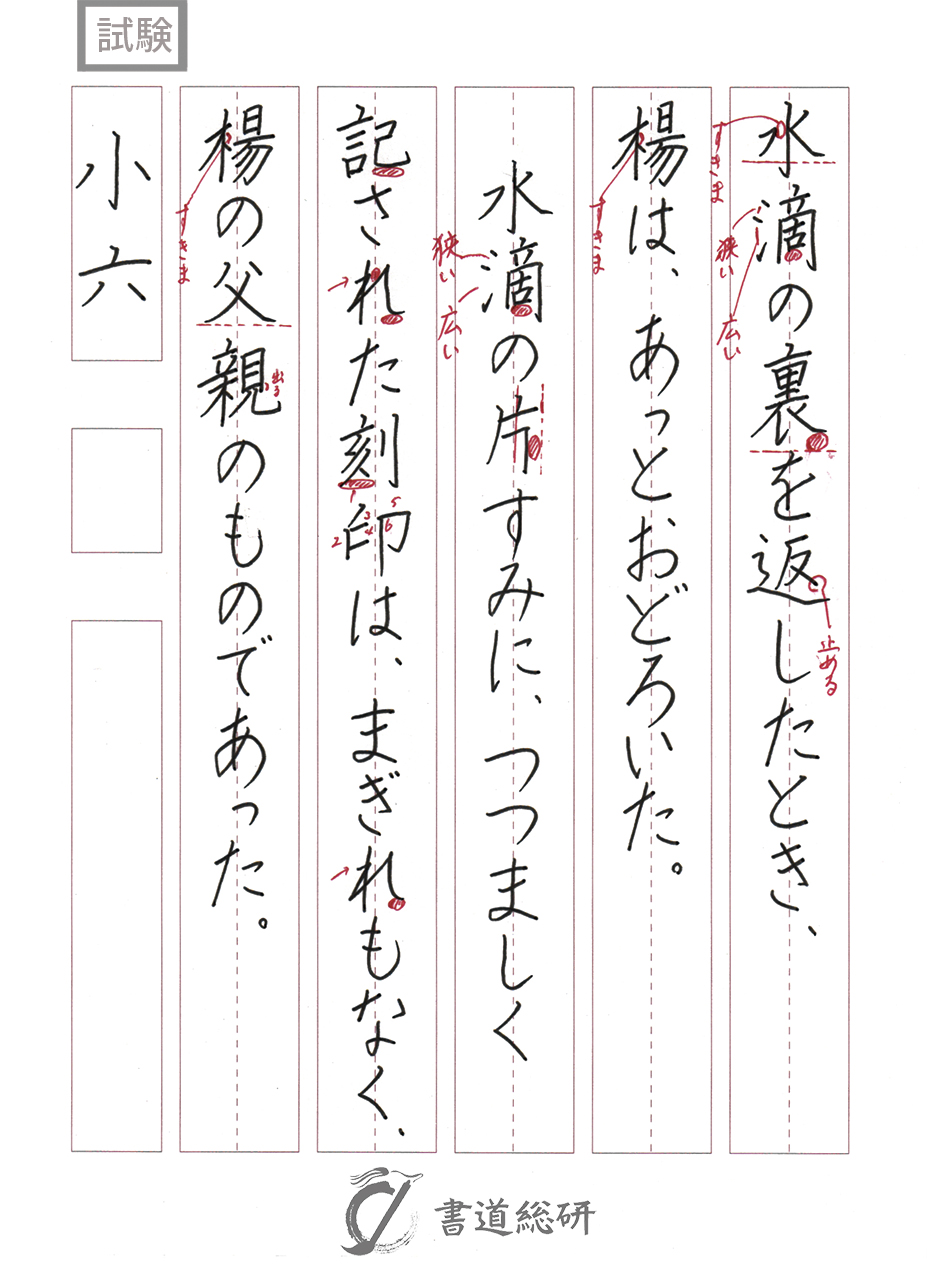 試験
水滴の裏を返したとき、
すきま
狭い
広い
止める
楊は、あっとおどろいた。
すきま
水滴の片すみに、つつましく
狭い
広い
記された刻印は、まぎれもなく、
1
2
3
4
5
6
楊の父親のものであった。
すきま
出る
小六
書道総研